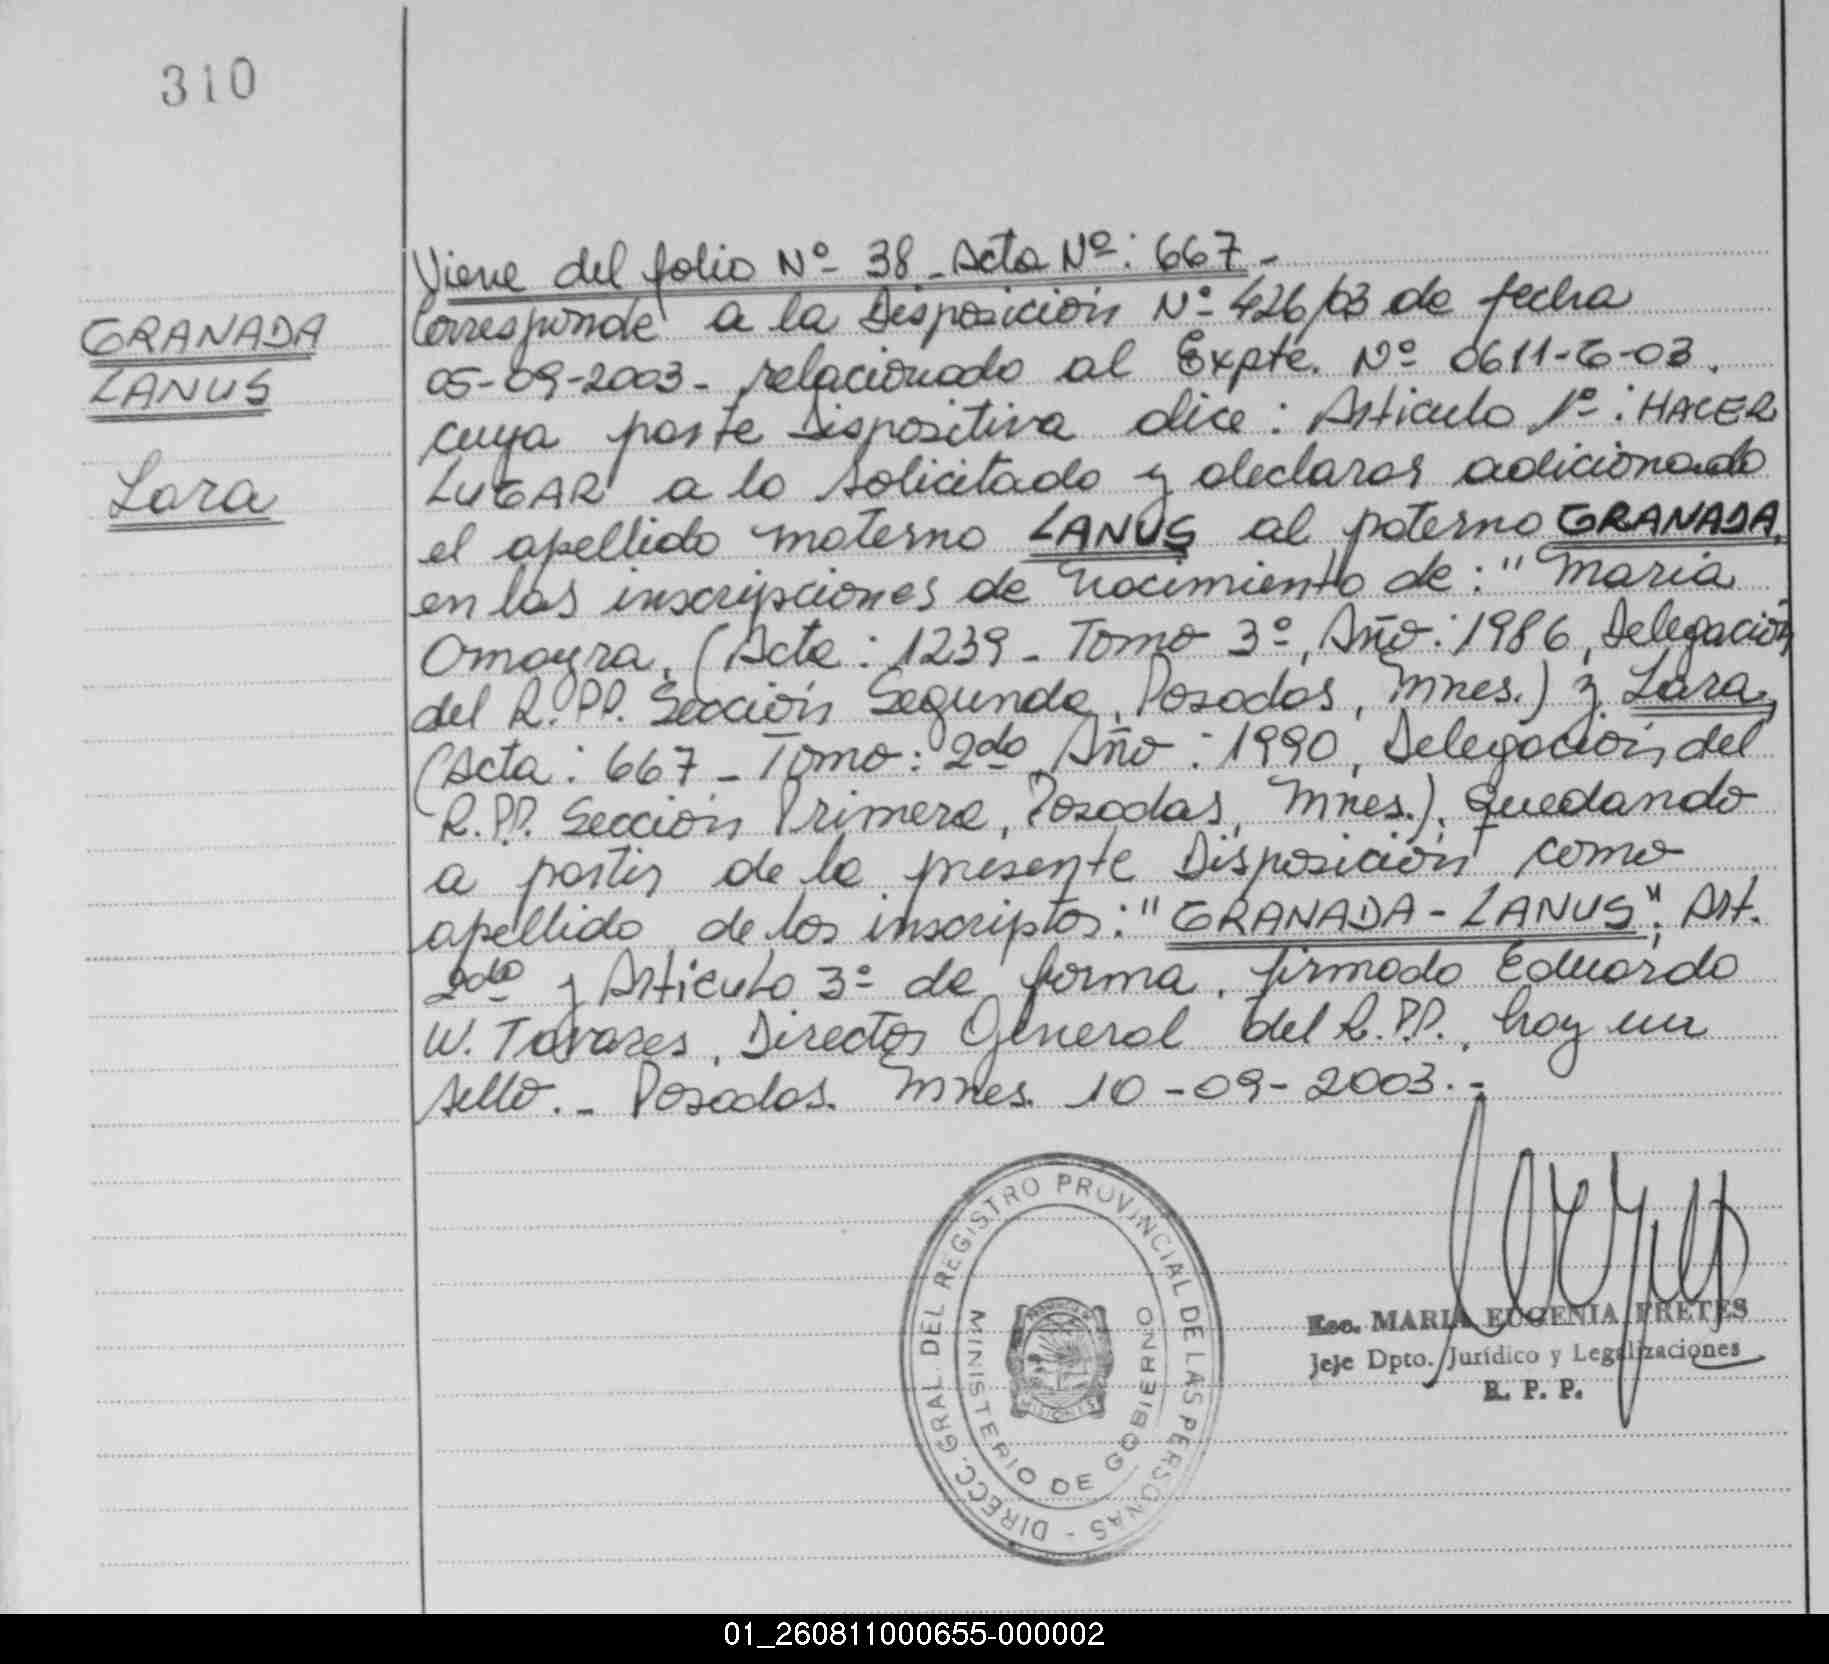 310
GRANADA
LANUS
Lara
Viene del folio Nº 38 - Acta Nº: 667 -
Corresponde a la Disposición Nº 426/03 de fecha
05-09-2003 - relacionado al Expte. Nº 0611-G-03.
cuya parte Dispositiva dice: Articulo 1º: HACER
LUGAR a lo solicitado y declarar adicionado
el apellido materno LANUS al paterno GRANADA,
en las inscripciones de nacimiento de: "Maria
Omayra, (Acta: 1239 - Tomo 3º, Año: 1986, Delegación
del R.PP. Sección Segunda, Posadas, Mnes.) y Lara,
(Acta: 667 - Tomo: 2do Año: 1990, Delegación del
R.PP. Sección Primera, Posadas, Mnes.), quedando
a partir de la presente Disposición como
apellido de los inscriptos: "GRANADA - LANUS"; Art.
2do y Articulo 3º de forma, firmado Eduardo
W. Tavares, Director General del R.P.P., hay un
sello. - Posadas. Mnes. 10 - 09 - 2003. -
DIRECC. GRAL. DEL REGISTRO PROVINCIAL DE LAS PERSONAS -
MINISTERIO DE GOBIERNO
PROVINCIA DE
MISIONES
Esc. MARIA EUGENIA PRETES
Jefe Dpto. Jurídico y Legalizaciones
R. P. P.
01_260811000655-000002